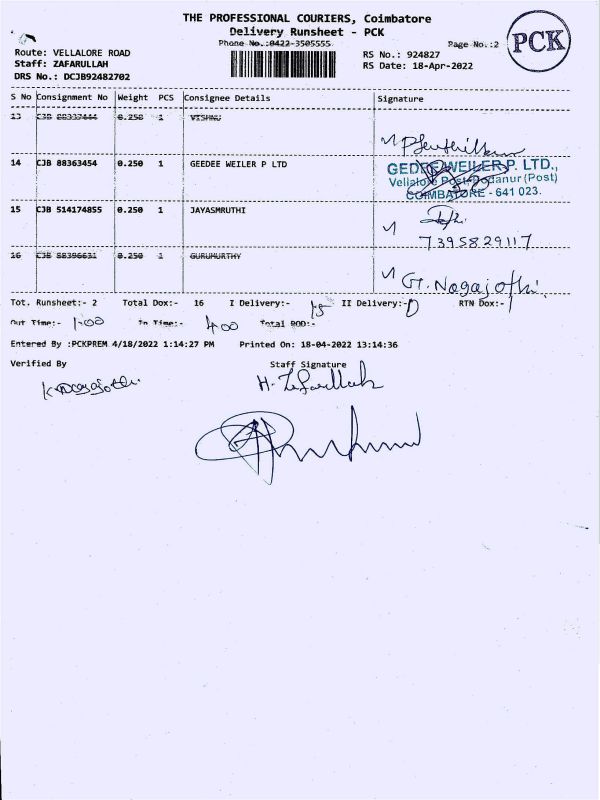 THE PROFESSIONAL COURIERS, Coimbatore
Delivery Runsheet - PCK
Phone No.:0422-3505555
Page No.:2
PCK
Route: VELLALORE ROAD
RS No.: 924827
Staff: ZAFARULLAH
RS Date: 18-Apr-2022
DRS No.: DCJB92482702
S No Consignment No Weight PCS Consignee Details Signature
13 CJB 88337444 0.250 1 VISHNU
14 CJB 88363454 0.250 1 GEEDEE WEILER P LTD
GEDEE WEILER P. LTD.,
Vellalore Post Podanur (Post)
COIMBATORE - 641 023.
15 CJB 514174855 0.250 1 JAYASMRUTHI
7395829117
16 CJB 88396631 0.250 1 GURUMURTHY
G. Nagajothi.
Tot. Runsheet:- 2 Total Dox:- 16 I Delivery:- 15 II Delivery:- RTN Dox:- 1
Out Time:- 1-00 In Time:- 4.00 Total POD:-
Entered By :PCKPREM 4/18/2022 1:14:27 PM Printed On: 18-04-2022 13:14:36
Verified By Staff Signature
H. Zafarullah